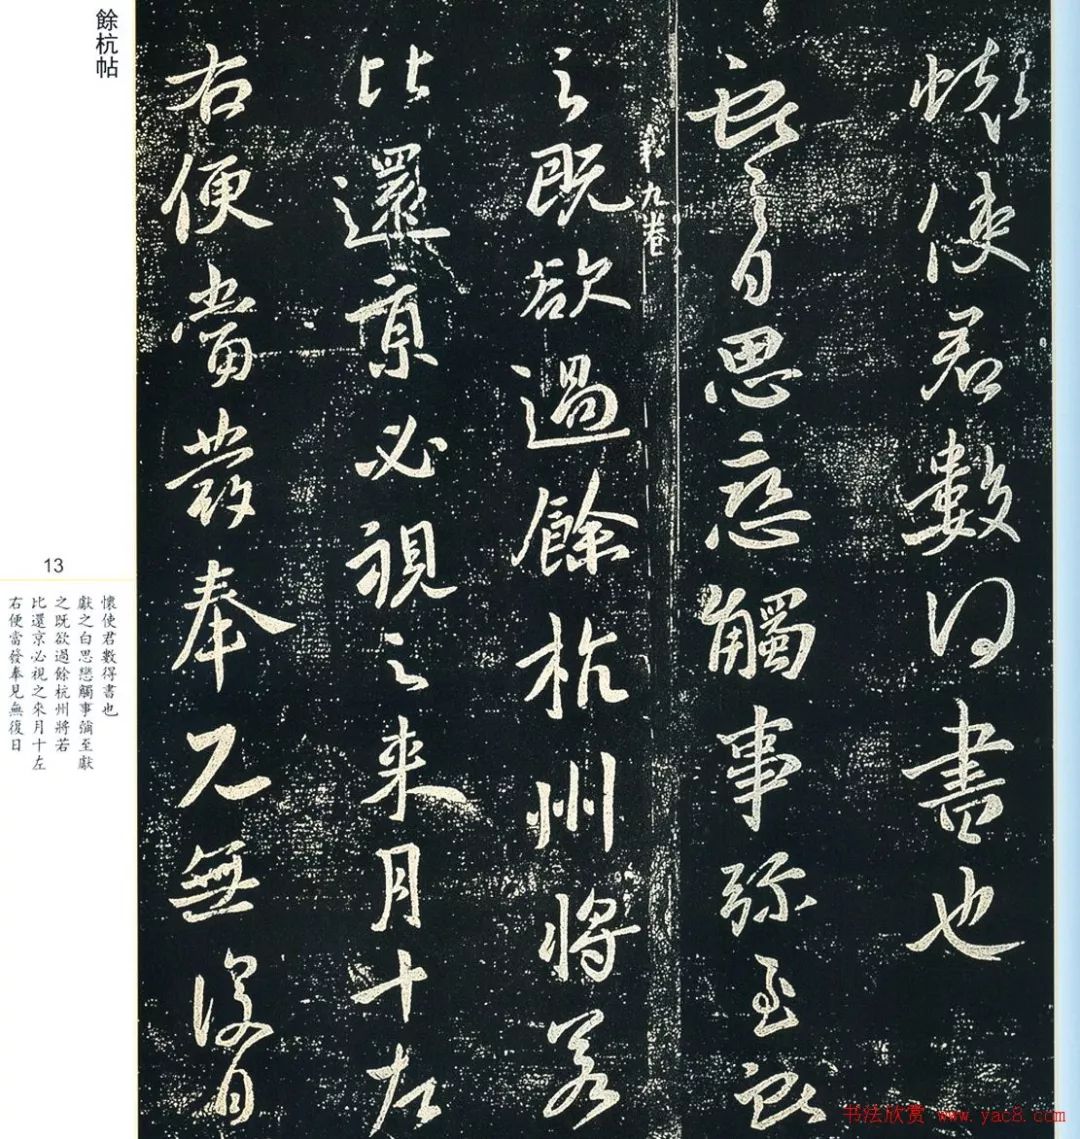 餘杭帖
懷使君數得書也
獻之白思戀觸事彌至獻
之既欲過餘杭州將若
比還京必視之來月十左
右便當發奉見無復日
第九卷
13
懷使君數得書也
獻之白思戀觸事彌至獻
之既欲過餘杭州將若
比還京必視之來月十左
右便當發奉見無復日
书法欣赏 www.yac8.com